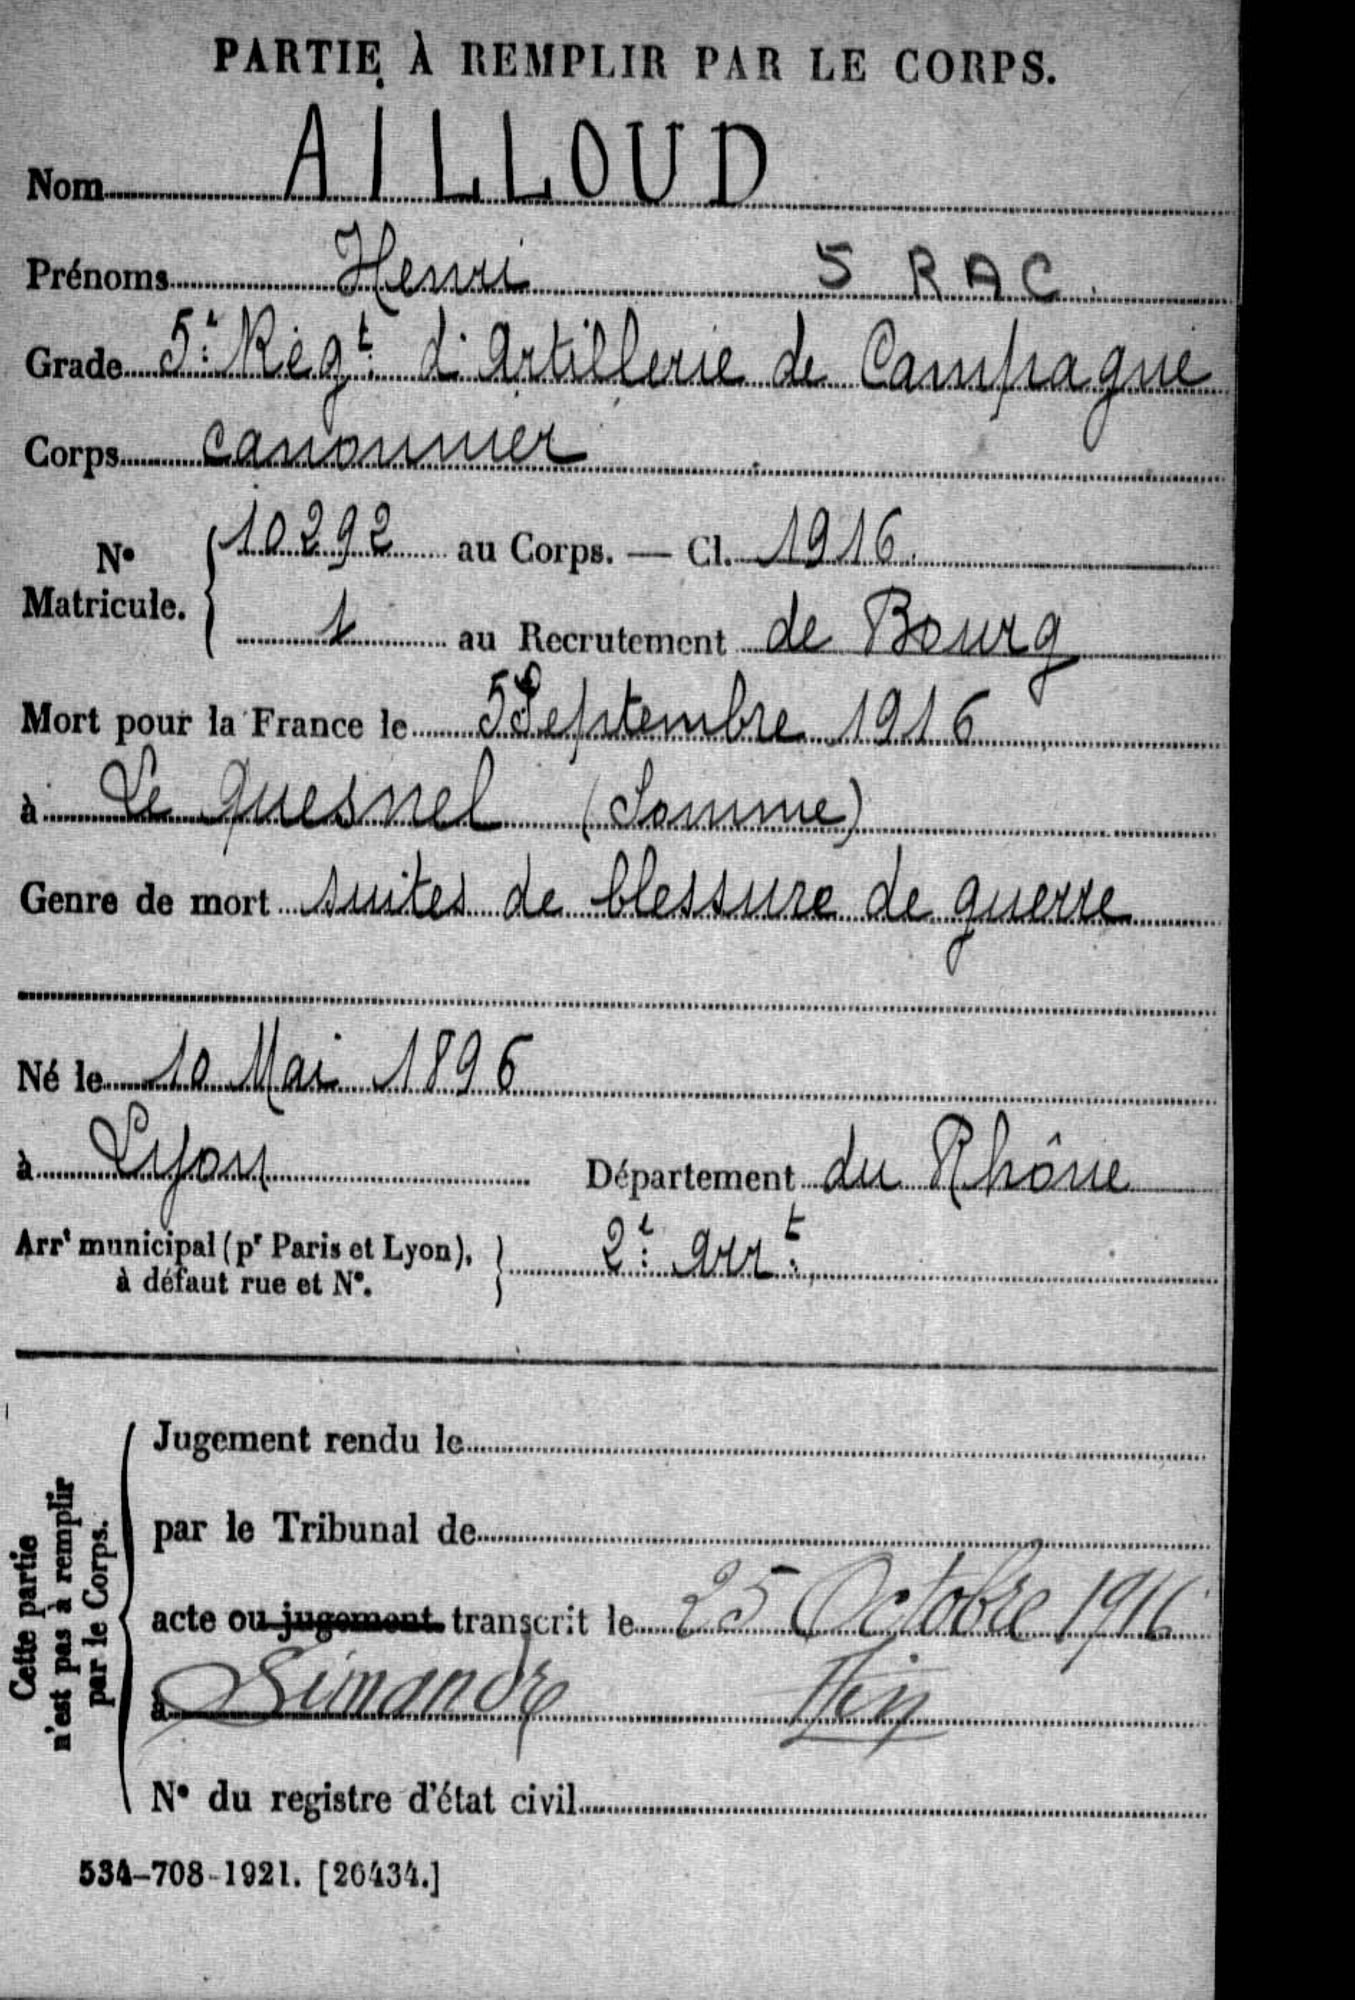 PARTIE À REMPLIR PAR LE CORPS.
Nom AILLOUD
Prénoms Henri 5 RAC.
Grade 5e Régt d'Artillerie de Campagne
Corps canonnier
N° Matricule. { 10292 au Corps. — Cl. 1916.
1 au Recrutement de Bourg
Mort pour la France le 5 Septembre 1916
à Le Quesnel (Somme)
Genre de mort suites de blessure de guerre
Né le 10 Mai 1896
à Lyon Département du Rhône
Arrt municipal (pr Paris et Lyon), à défaut rue et N°. } 2e arrt.
Cette partie n'est pas à remplir par le Corps.
Jugement rendu le
par le Tribunal de
acte ou jugement transcrit le 25 Octobre 1916
à Simandre Ain
N° du registre d'état civil
534-708-1921. [26434.]